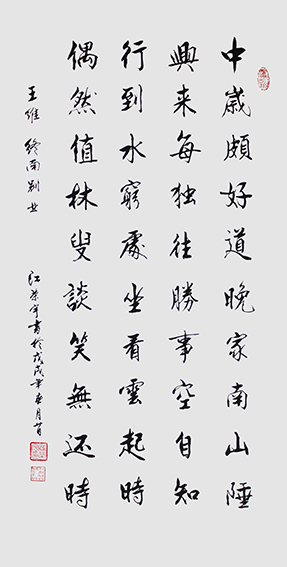 中歲頗好道晚家南山陲
興来每独往勝事空自知
行到水窮處坐看雲起時
偶然值林叟談笑無还時
王維 终南别业 書於戊戌年